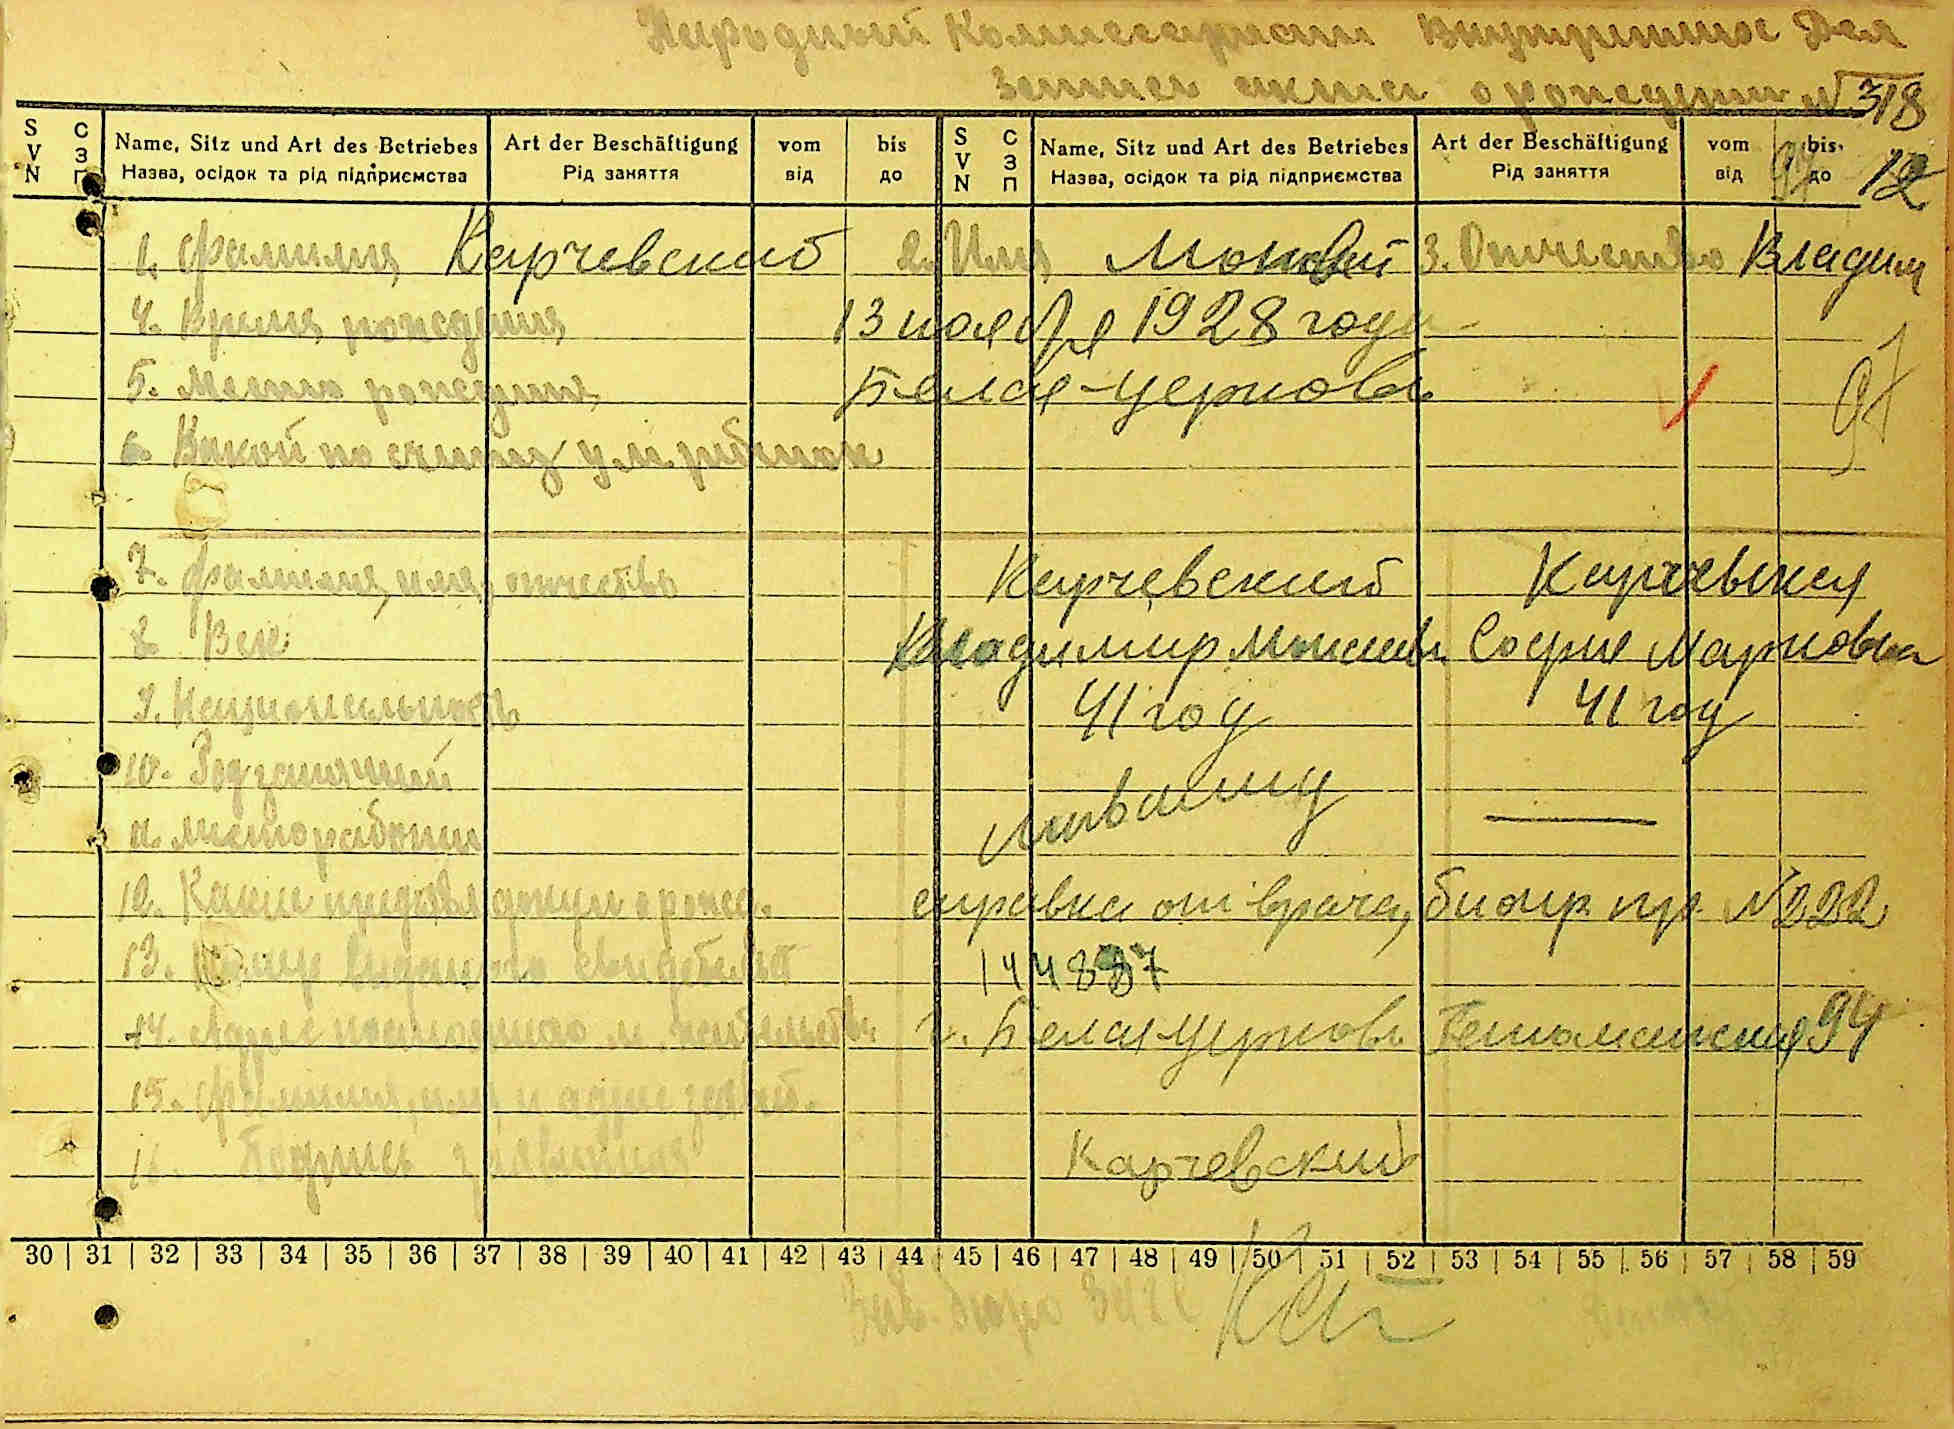 Народный Комиссариат Внутренних Дел
Запись акта о рождении № 318
S V N С З П Name, Sitz und Art des Betriebes Art der Beschäftigung vom bis S V N С З П Name, Sitz und Art des Betriebes Art der Beschäftigung vom bis
Назва, осідок та рід підприємства Рід заняття від до Назва, осідок та рід підприємства Рід заняття від до 12
1. Фамилия Карчевский 2. Имя 3. Отчество Владим
4. Время рождения 13 ноября 1928 года
5. Место рождения Белая-Церковь
6. Какой по счету у м. ребенок
7. Фамилия, имя, отчество Карчевский Карчевская
8. Век Владимир Моисеев. София Марковна
9. Национальность 41 год 41 год
10. Род занятий
11. Место работы
12. Какие представл докум о рожд. справка от врача, биомр пр. № 222
13. Номер выданого свидетельст 144887
14. Адрес постоянного м. жительства г. Белая Церковь 94
15. Фамилия, имя и адрес заявит.
16. Подпись заявителя Карчевский
30 | 31 | 32 | 33 | 34 | 35 | 36 | 37 | 38 | 39 | 40 | 41 | 42 | 43 | 44 | 45 | 46 | 47 | 48 | 49 | 50 | 51 | 52 | 53 | 54 | 55 | 56 | 57 | 58 | 59
Зав. бюро ЗАГС